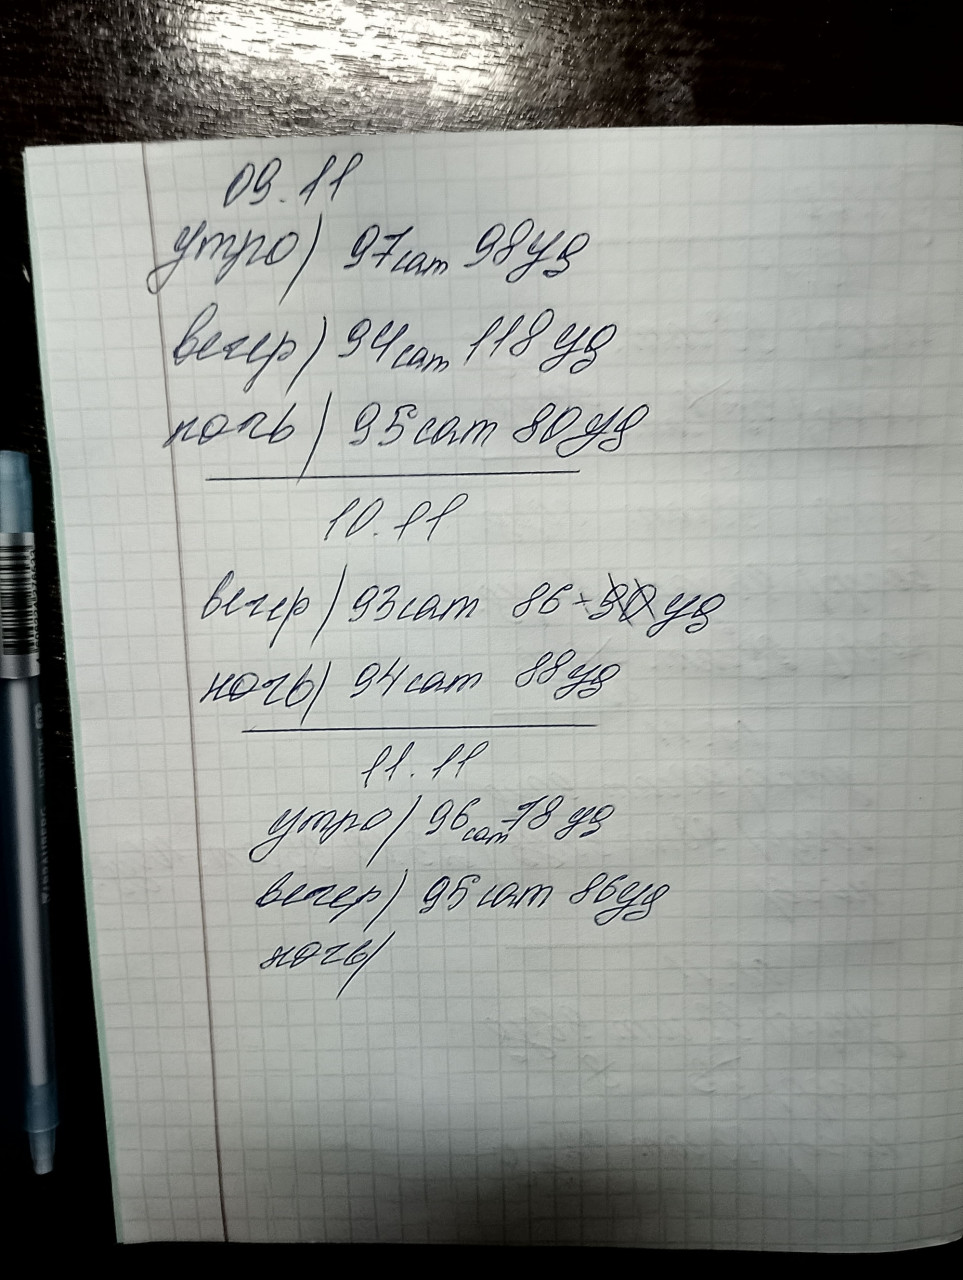 09.11
утро) 97сат 98уд
вечер) 94сат 118уд
ночь) 95сат 80уд
10.11
вечер) 93сат 86 уд
ночь) 94сат 88уд
11.11
утро) 96сат 78уд
вечер) 95сат 86уд
ночь)